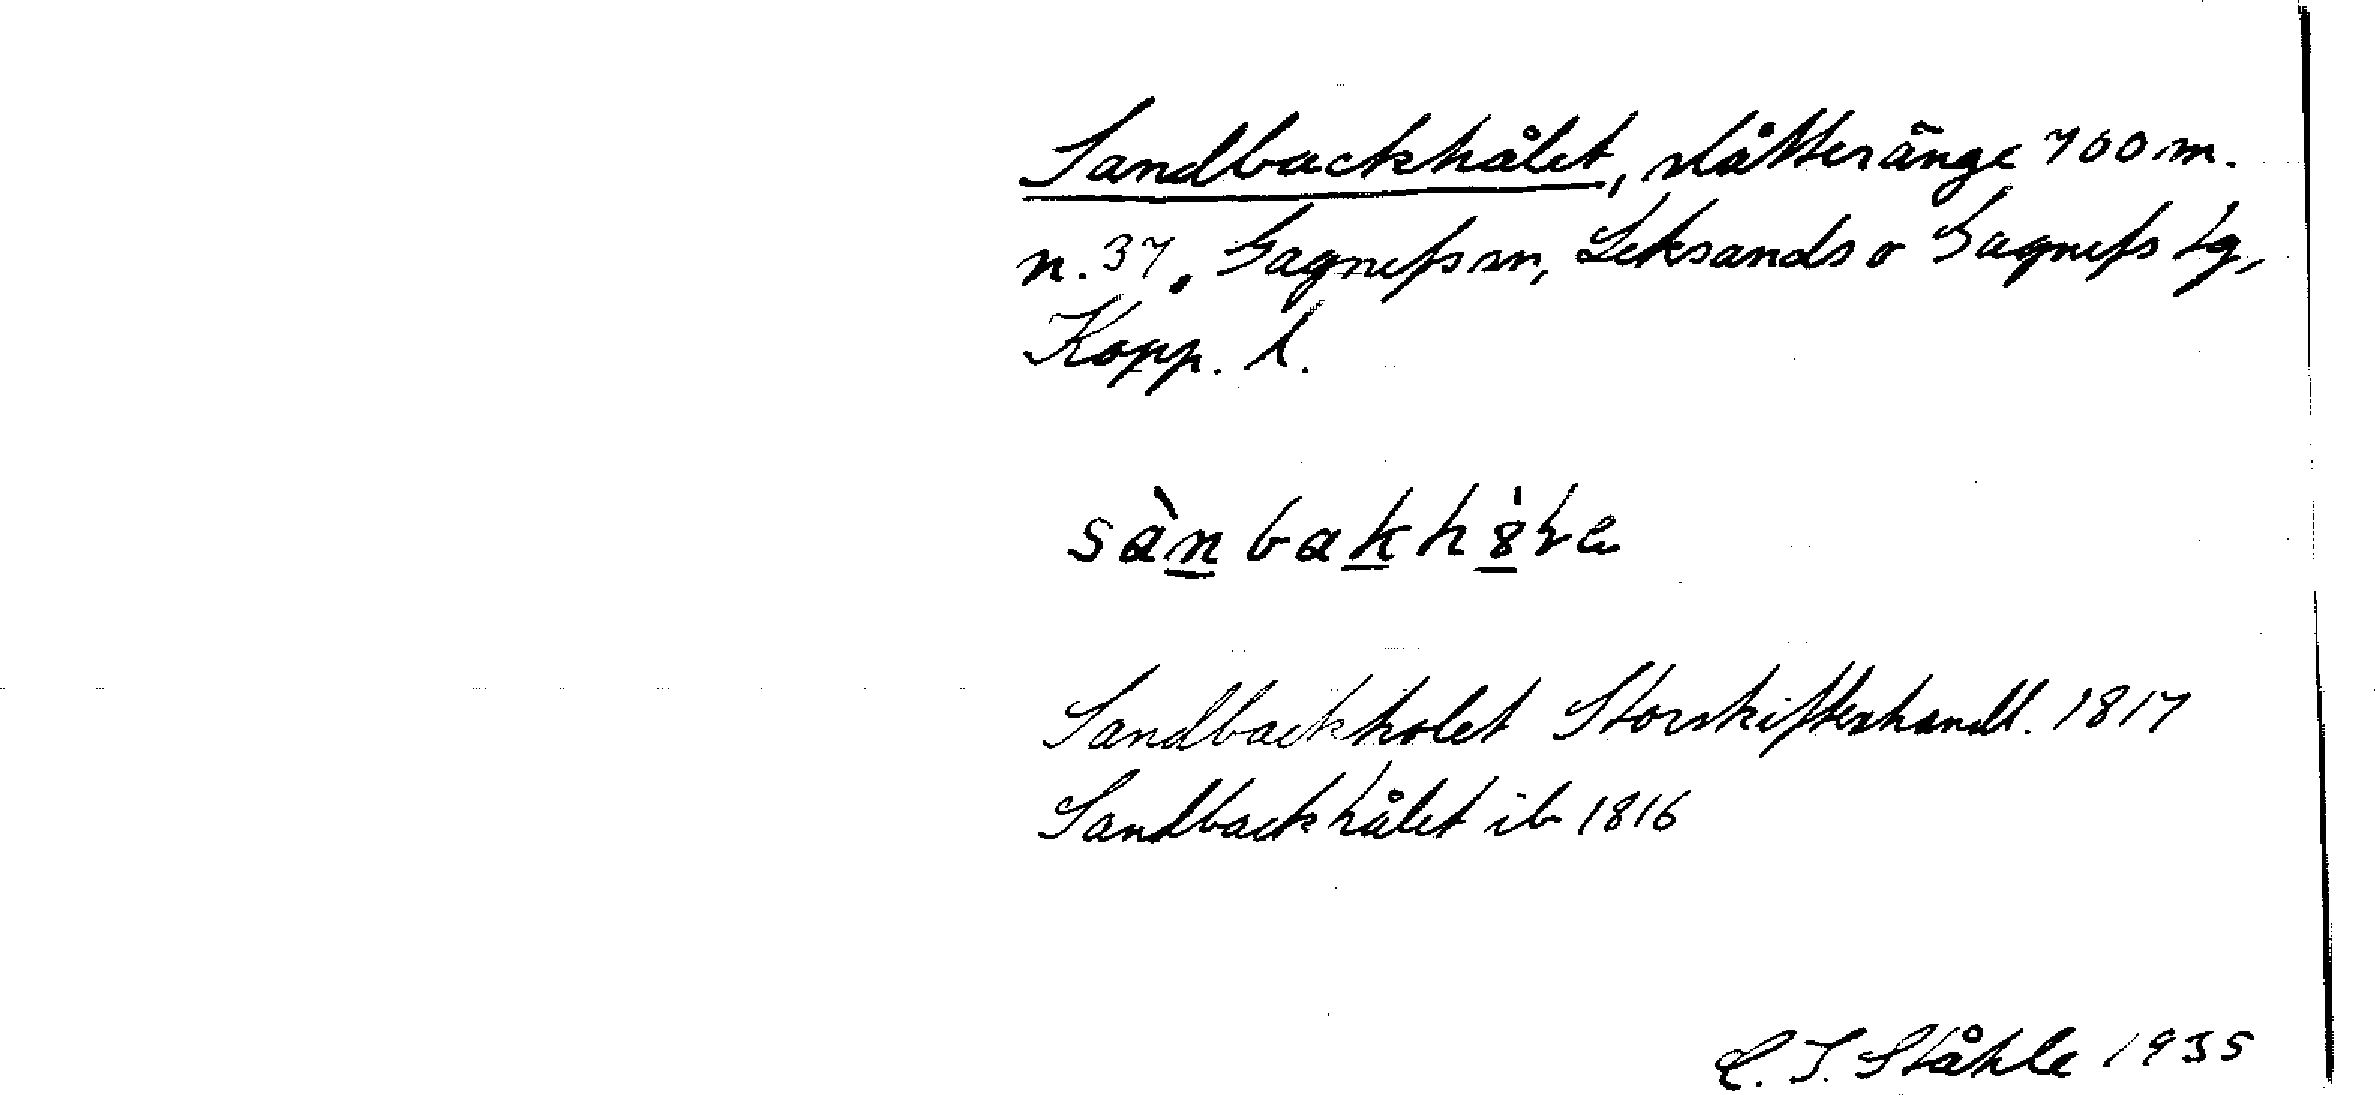 Sandbackhålet, slåtteränge 700 m.
n. 37. Gagnefs sn, Leksands o Gagnefs tg,
Kopp. l.
Sandbackholet Storskifteshandl. 1817
Sandbackhålet ib 1816
C. I. Ståhle 1935